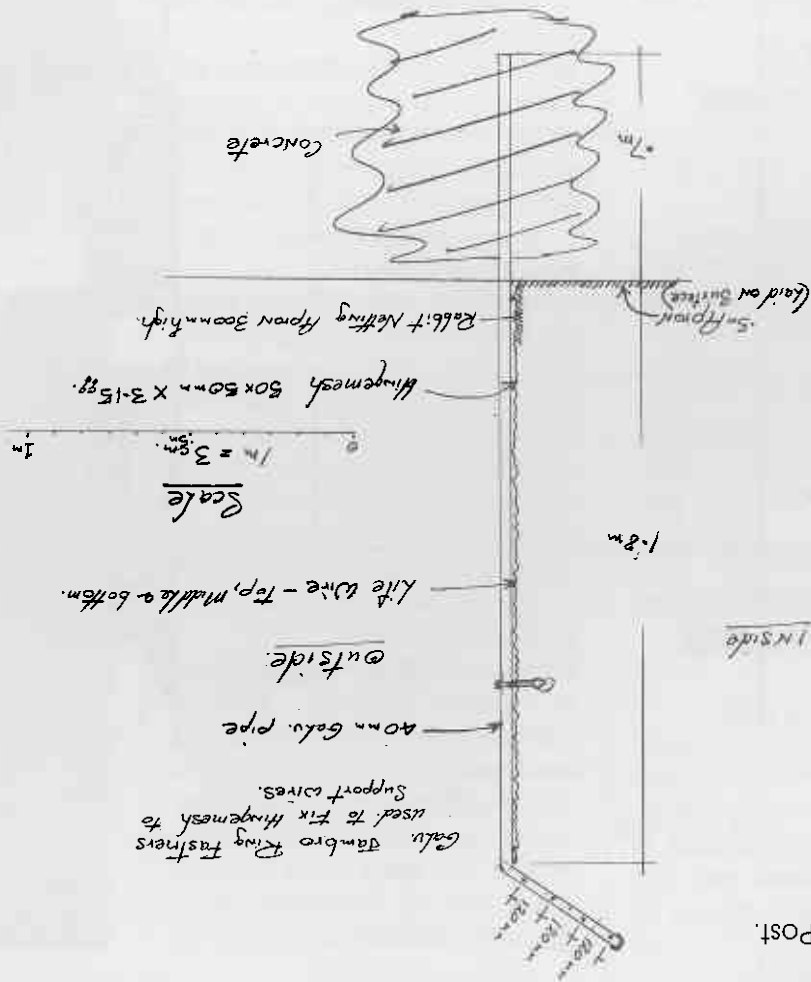 Post.
120mm
120mm
120mm
Galv. Jambro Ring Fastners
used to Fix Hingemesh to
Support wires.
40mm Galv. pipe
Outside.
INSide
Life Wire - Top, Middle & bottom.
1.8m
Scale
1m = 3cm.
.5m
0
1m
Hingemesh 50x50mm X 3.15gg.
Rabbit Netting Apron 300mm high.
.5m Apron
(Laid on
Surface)
.7m
Concrete